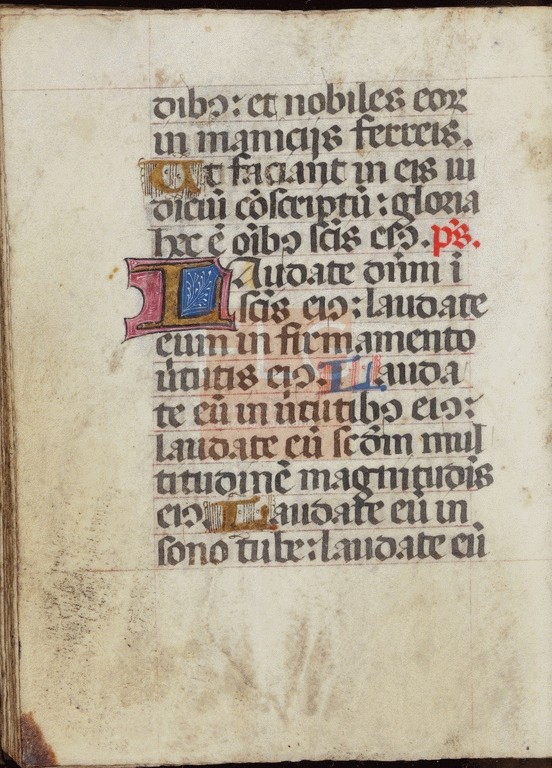 dibꝯ: et nobiles eoꝝ
in manicijs ferreis.
Ut faciant in eis iu
diciū cōscriptū: gloria
hec ē oībꝯ scīs eiꝯ. ps̄.
Laudate dn̄m ī
scīs eiꝯ: laudate
eum in firmamento
ūtutis eiꝯ. Lauda
te eū in ūtutibꝯ eiꝯ:
laudate eū scd̄m mul
titudinē magnitudīs
eiꝯ Laudate eū in
sono tube: laudate eū